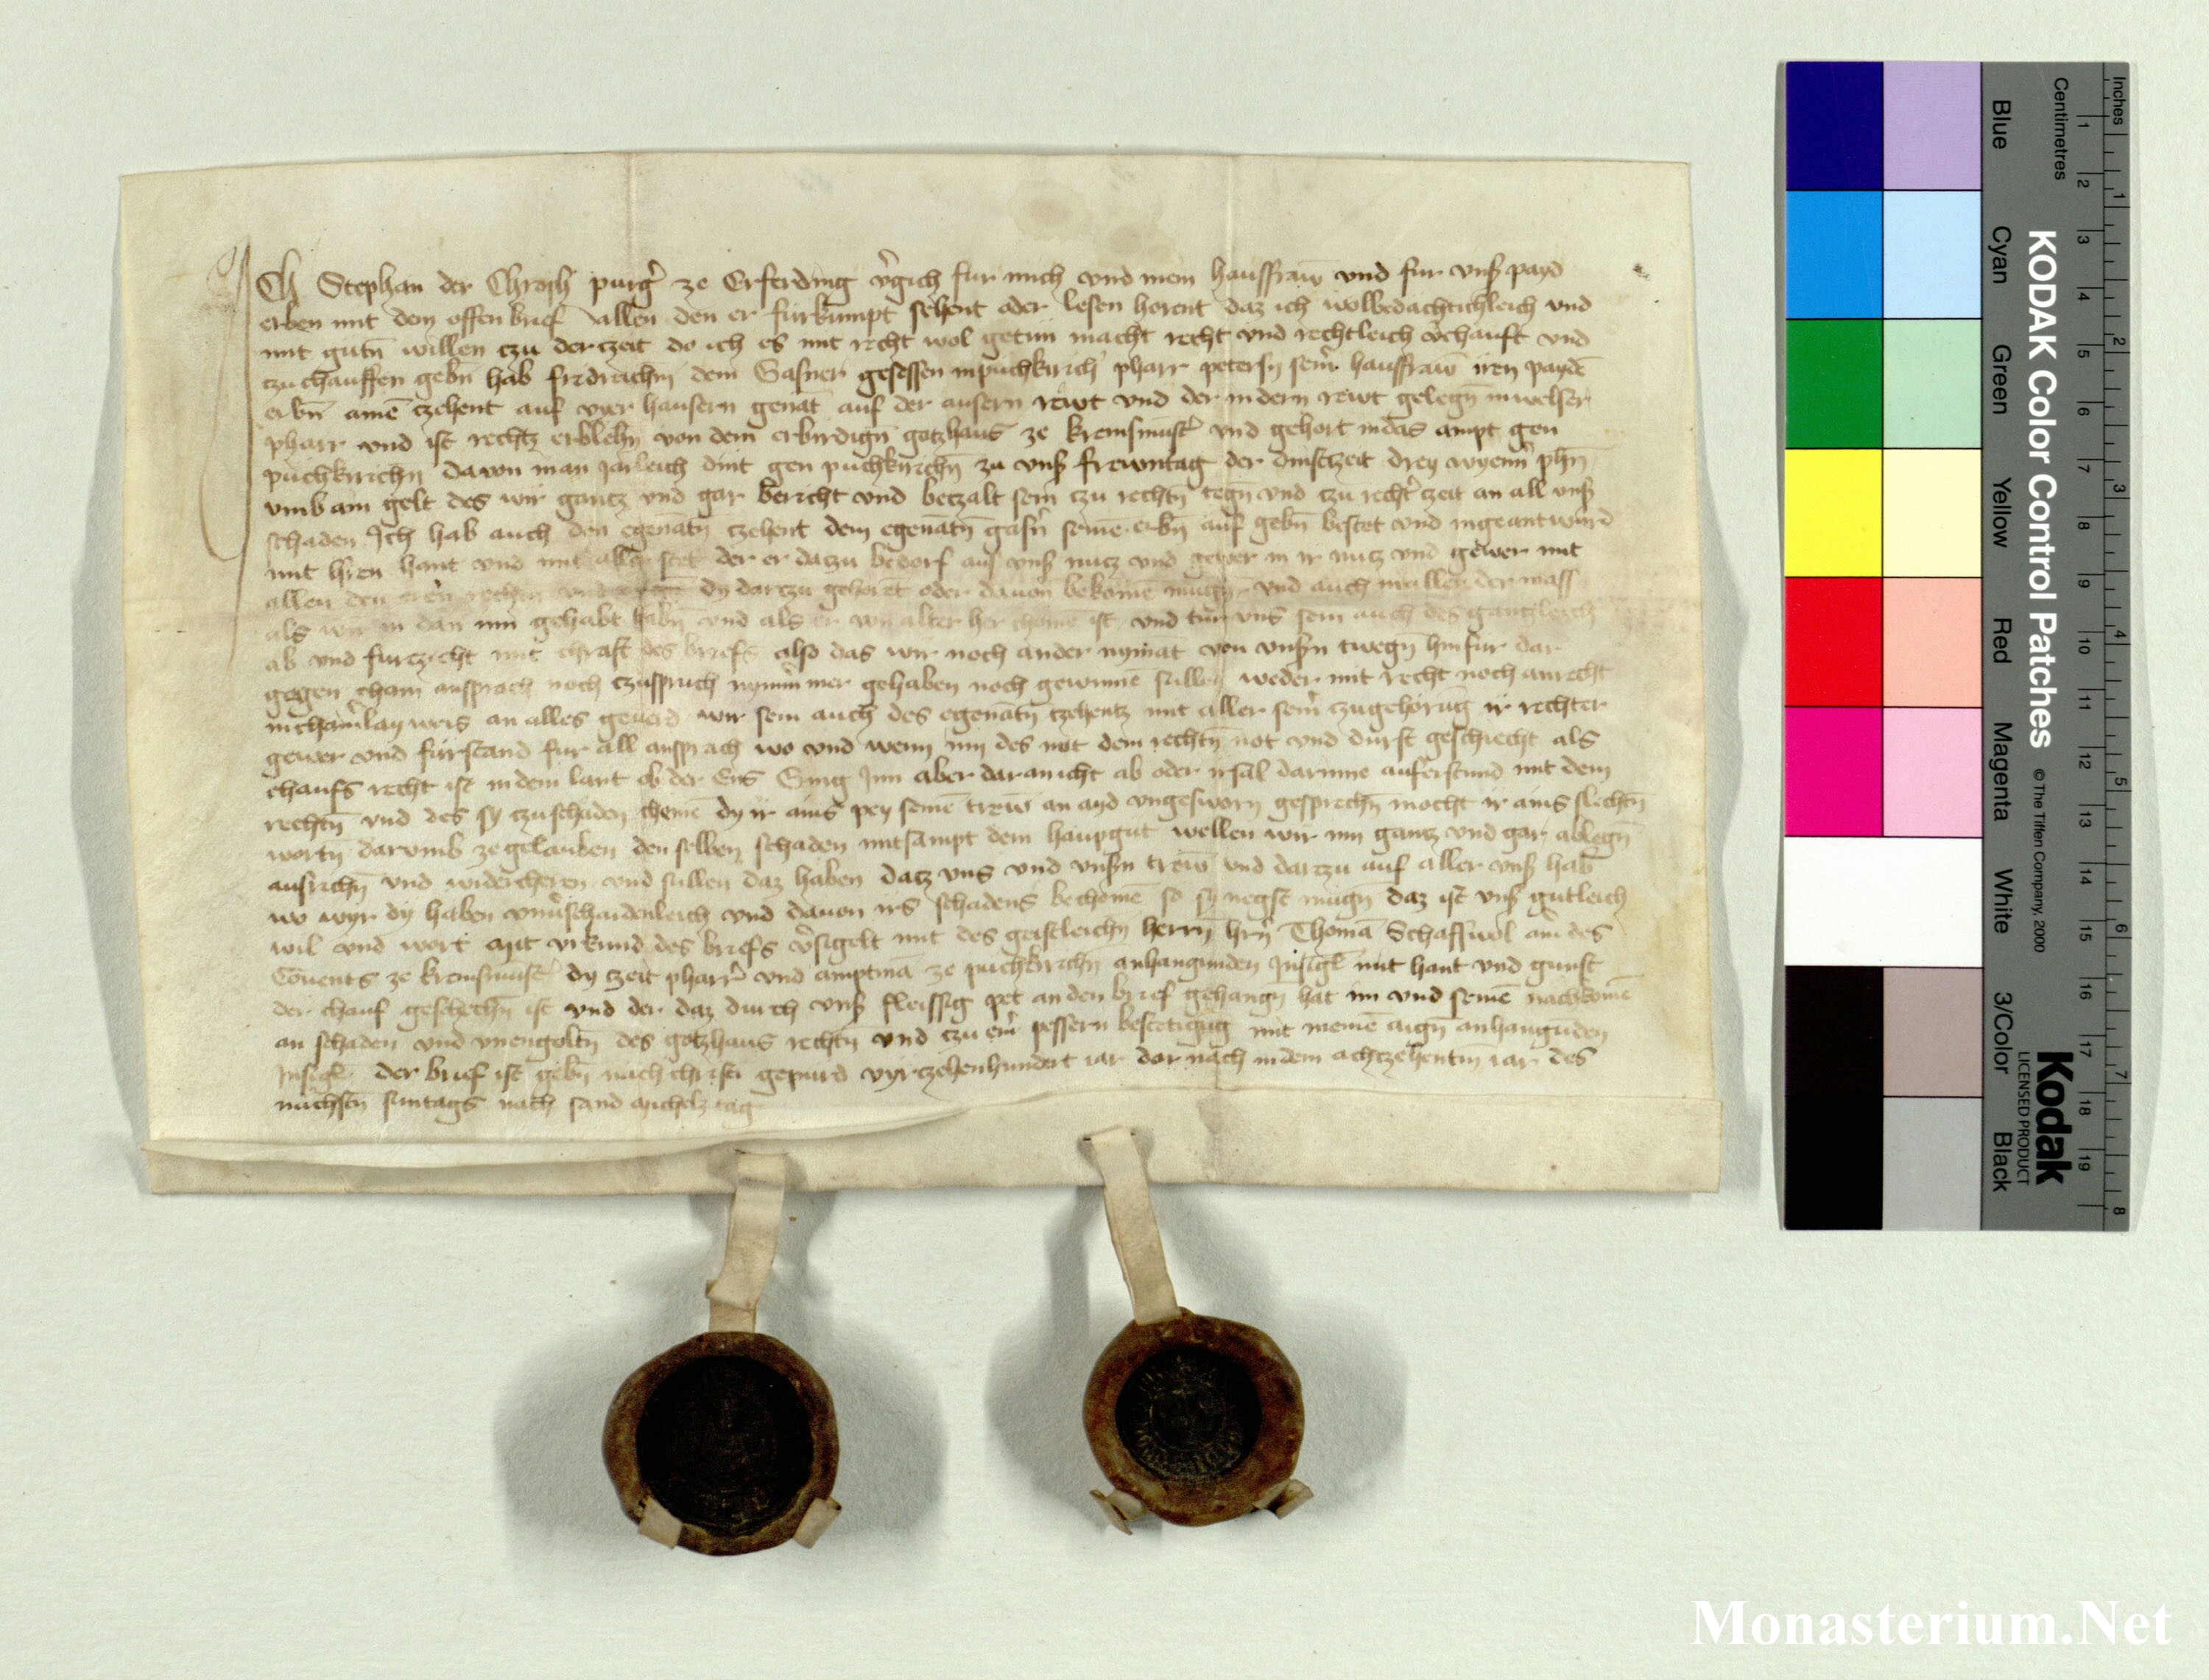 Ich Stephan der Chrosh purg̉ ze Erferding v̉gich fur mich vnd mein hausfraw̄ vnd fur vnß payd
erben mit dem offen brief allen den er fürkumpt sehent oder lesen horent daz ich wolbedachtichleich vnd
mit gutn̄ willen czu der czeit do ich es mit recht wol getun macht recht vnd rechtleich v̉chauft vnd
czuchauffen gebn hab fridreichn̄ dem Gasner gesessen in puchkirich̉ pharr petersn̄ sein̉ hausfraw̄ iren paydē
erbn̄ ainē czehent auf vyer hausern genāt auf der ausern rewt vnd der indern rewt gelegn̄ in welser
pharr vnd ist rechtz erblehn̄ von dem erbirdign̄ gotzhaus ze kremsmūst̉ vnd gehort in das ampt gen
puchkirichn̄ dauon man jarleich dint gen puchkirichn̄ zu vnß frewntag der dinstzeit drey wyenn̉ phn̄
vmb ain gelt des wir gantz vnd gar bericht vnd beczalt sein czu rechtn̄ tegn̄ vnd czu recht̉ czeit an all vnß
schaden Ich hab auch den egenātn̄ czehent dem egenātn̄ gasn̉ seinē erbn̄ auf gebn̄ bestet vnd ingeantwurd
mit hren hant vnd mit aller stet der er datzu bedorf aus vnß nucz vnd gewer in ir nucz vnd gewer mit
allen den ern̄ rechtn̄ dy dartzu gehorēt oder dauon bekomē mugn̄ vnd auch in aller der mass
als wir in dan inn gehabt habn̄ vnd als er von alter her chome ist vnd tun vns sein auch des gantzleich
ab vnd furczicht mit chraft des briefs also das wir noch ander nymāt von vnsn̄ twegn̄ hinfur dar
gegen chain ansprach noch czuspruch nym̄mer gehaben noch gewinnē sullen weder mit recht noch anrecht
in chain̉lay weis an alles geuerd wir sein auch des egenātn̄ czehentz mit aller sein̉ czugehörūg ir rechter
gewer vnd fürstand fur all ansprach wo vnd wenn inn des not dem rechtn̄ not vnd durft geschiecht als
chaufs recht ist in dem lant ob der Ens Ging Inn aber daran icht ab oder irsal darinne auferstund mit dem
rechtn̄ vnd des sy czuschaden chemē dy ir ains pey seinē trew̄ an ayd vngesworn gesprechn̄ mocht ir ains slechtn̄
wortn̄ darumb ze gelauben den selben schaden mitsampt dem haupgut wellen wir inn gantz vnd gar ablegn̄
ausrichn̄ vnd widercheren vnd sullen daz haben datz vns vnd vnsn̄ trew̄ vnd dartzu auf aller vnß hab
wo wyr dy haben vnuerschaidenleich vnd dauon irs schadens bechomē so sy negst mugn̄ daz ist vnß gutleich
wil vnd wort Mit vrkund des briefs v̉sigelt mit des geistleichn̄ herrn̄ hrn̄ Thomā Schaffswol des
Conents ze kremsmūst̉ dy czeit pharr̉ vnd amptmā ze puchkirichn̄ anhangunden Insigl mit hant vnd gunst
der chauf geschechn̄ ist vnd der daz durch vnß fleissig pet an den brief gehangn̄ hat im vnd seinē nachkomē
an schaden vnd vnengoltn̄ des gotzhaus rechtn̄ vnd czu ein̉ pessern bestetigūg mit meinē aign̄ anhangūden
Insigl der brief ist gebn̄ nach christi gepurd vyrczehenhundert iar dar nach in dem achtzehentn̄ iar des
nachstn̄ suntags nach sand Michelz tag
Inches
Centimetres
KODAK Color Control Patches © The Tiffen Company, 2000
Kodak
LICENSED PRODUCT
Blue Cyan Green Yellow Red Magenta White 3/Color Black
1 2 3 4 5 6 7 8 9 10 11 12 13 14 15 16 17 18 19
1 2 3 4 5 6 7 8
Monasterium.Net